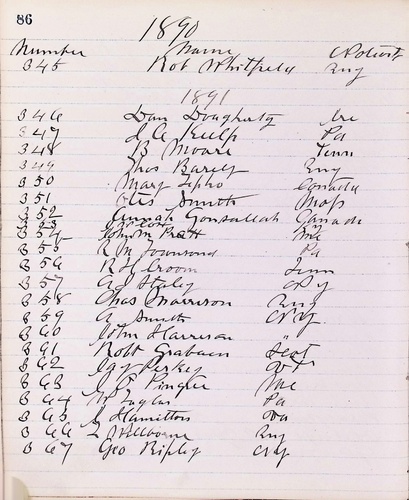 86
1890
Number Name
345 Rob Whitfield Eng
1891
346 Dan Dougherty Ire
347 Pa
348 B Moore Tenn
349 Eng
350 Mary Canada
351 Smith Mass
352 Hannah Gonsallah Canada
353
354 John M Pratt Me
355 R M Townsend Pa
356 R H Croom Tenn
357 Staley NY
358 Chas Morrison Eng
359 A Smith NY
360 John Harrison "
361 Robt Graham Scot
362 Jay Perkey VT
363 J P Pingree Me
364 W Taylor Pa
365 J Hamilton
366 L Wilbourne Eng
367 Geo Ripley NY